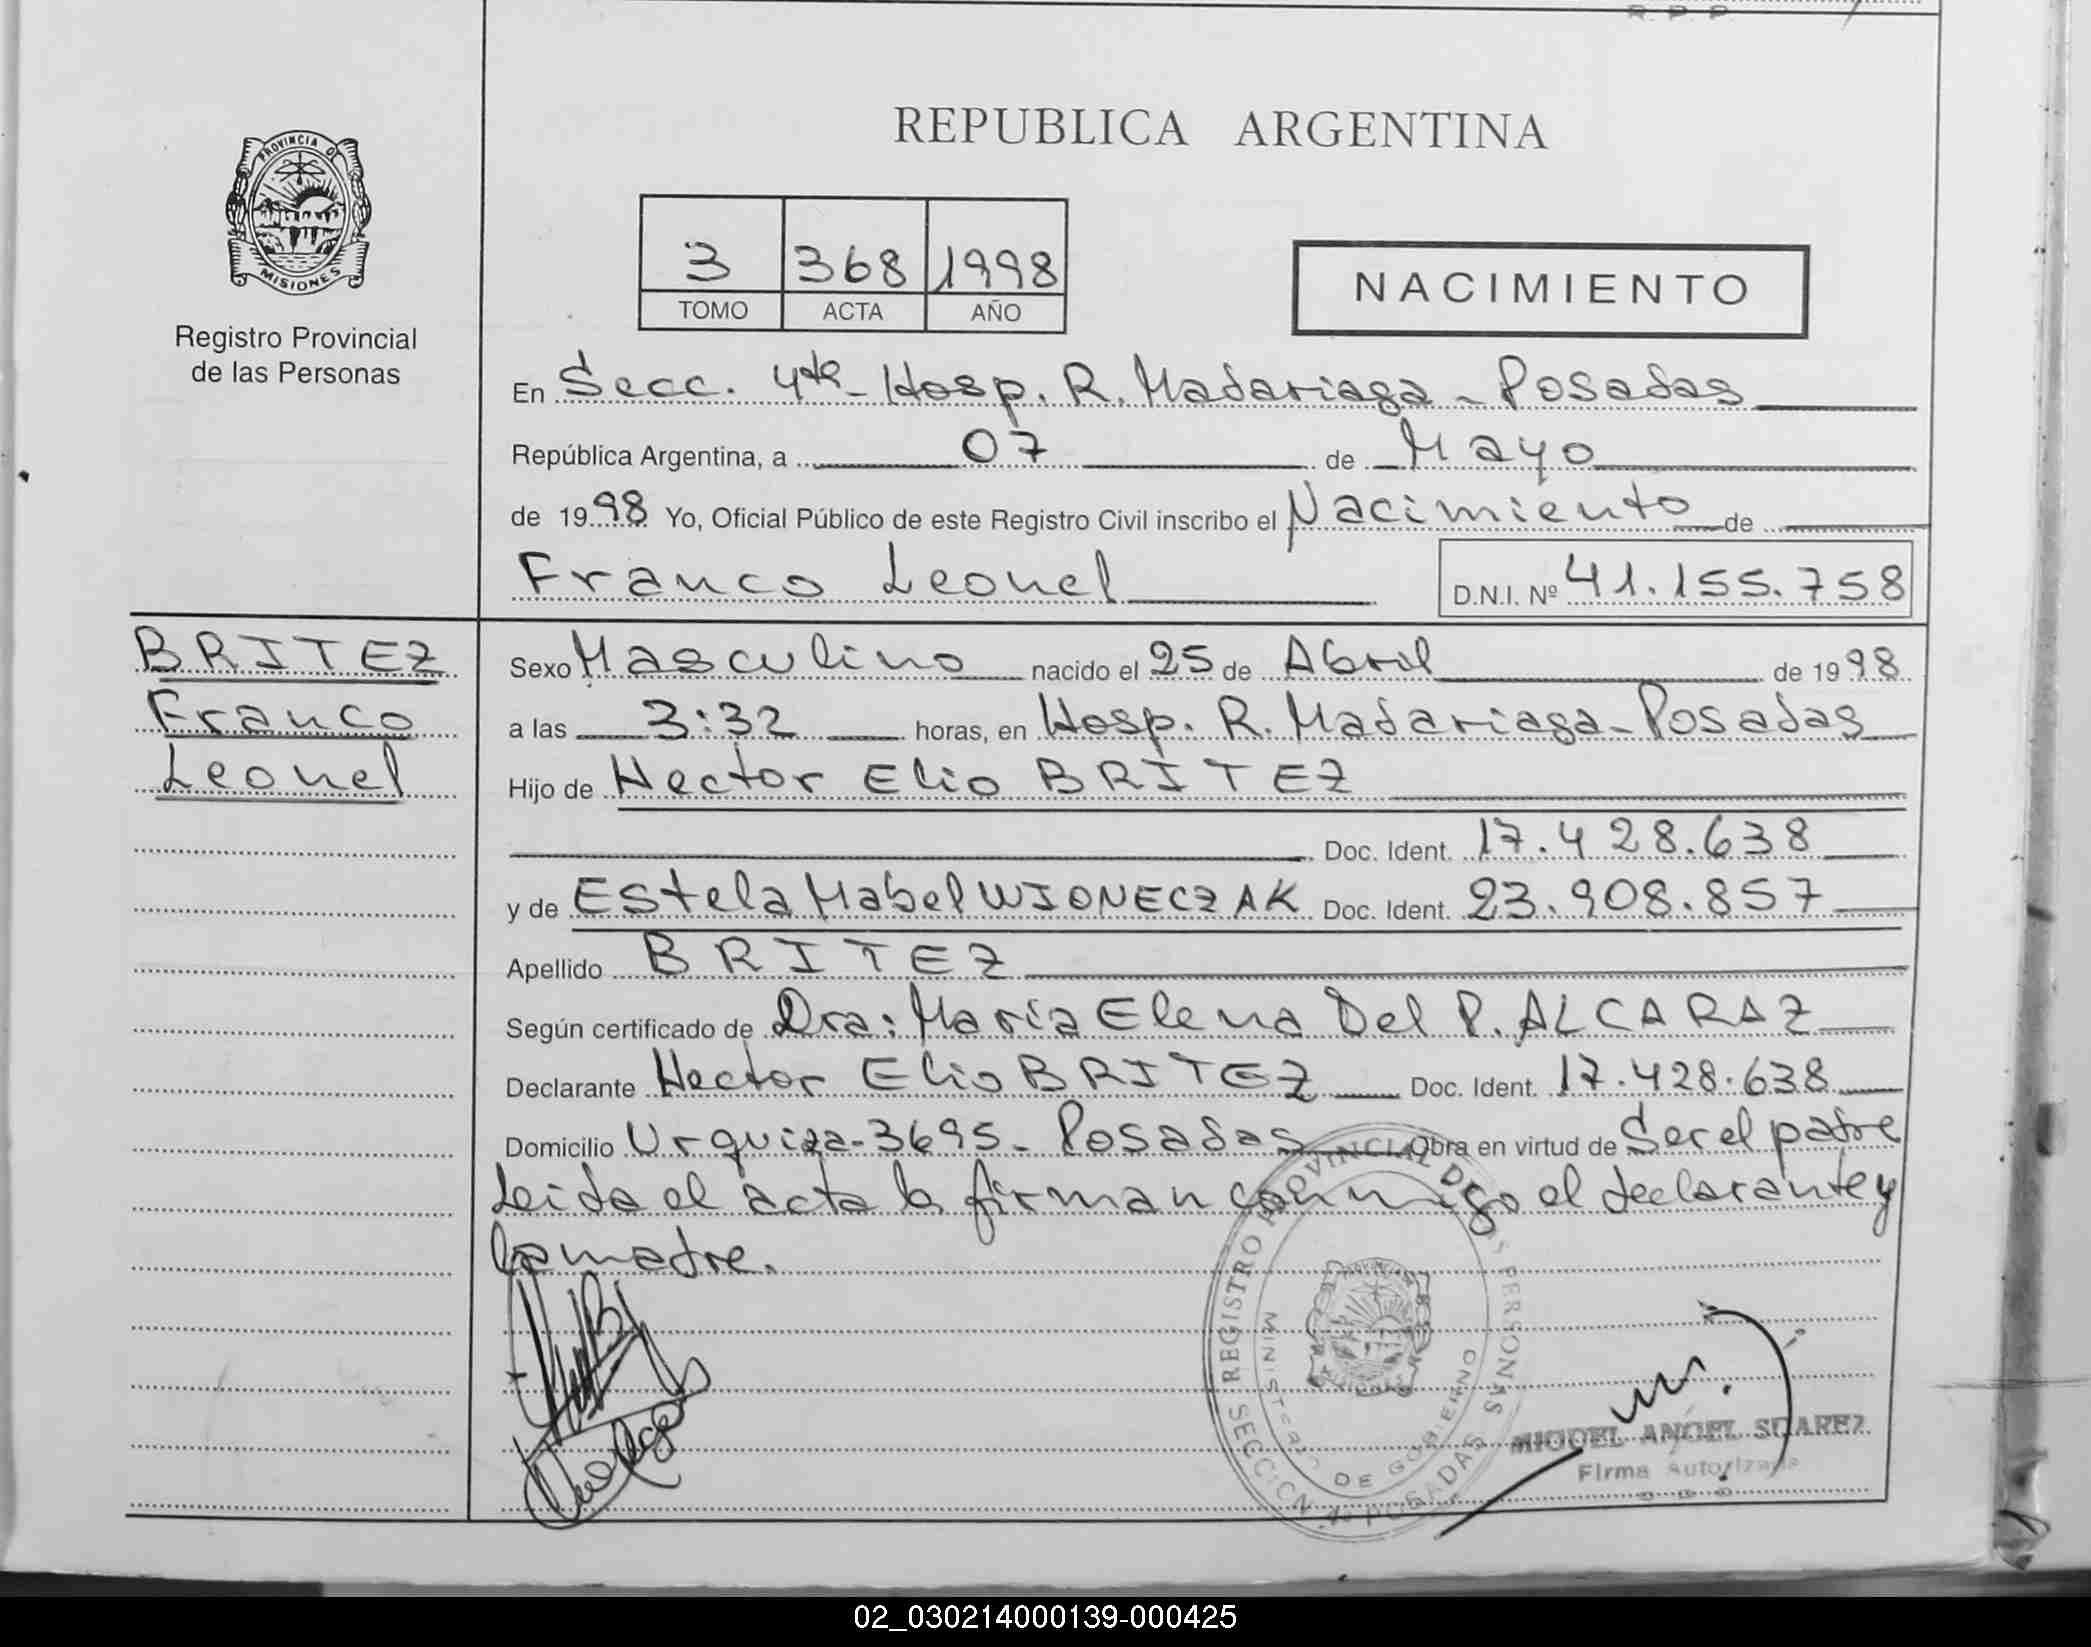 R. P. P
REPUBLICA ARGENTINA
PROVINCIA D
MISIONES
Registro Provincial
de las Personas
3 368 1998
TOMO ACTA AÑO
NACIMIENTO
En Secc. 4ta - Hosp. R. Madariaga - Posadas
República Argentina, a 07 de Mayo
de 1998 Yo, Oficial Público de este Registro Civil inscribo el Nacimiento de
Franco Leonel D.N.I. Nº 41.155.758
BRITEZ
Franco
Leonel
Sexo Masculino nacido el 25 de Abril de 1998
a las 3:32 horas, en Hosp. R. Madariaga - Posadas
Hijo de Hector Elio BRITEZ
Doc. Ident. 17.428.638
y de Estela Mabel WIONECZAK Doc. Ident. 23.908.857
Apellido BRITEZ
Según certificado de Dra: María Elena Del P. ALCARAZ
Declarante Hector Elio BRITEZ Doc. Ident. 17.428.638
Domicilio Urquiza - 3695 - Posadas Obra en virtud de Ser el padre
Leida el acta la firman conmigo el declarante y
la madre.
REGISTRO PROVINCIAL DE LAS PERSONAS
MINISTERIO DE GOBIERNO
SECCION 4ª POSADAS
MIGUEL ANGEL SUAREZ
Firma Autorizada
02_030214000139-000425